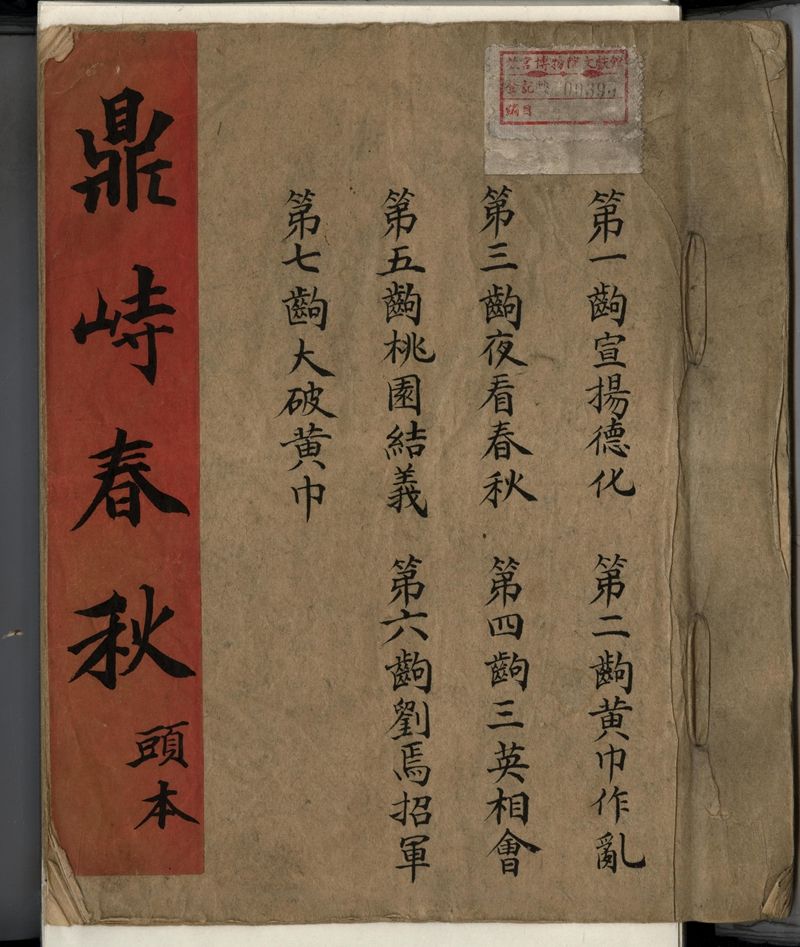 故宮博物院文獻館
登記號
編目
第一齣宣揚德化 第二齣黄巾作亂
第三齣夜看春秋 第四齣三英相會
第五齣桃園結義 第六齣劉焉招軍
第七齣大破黄巾
鼎峙春秋
頭本